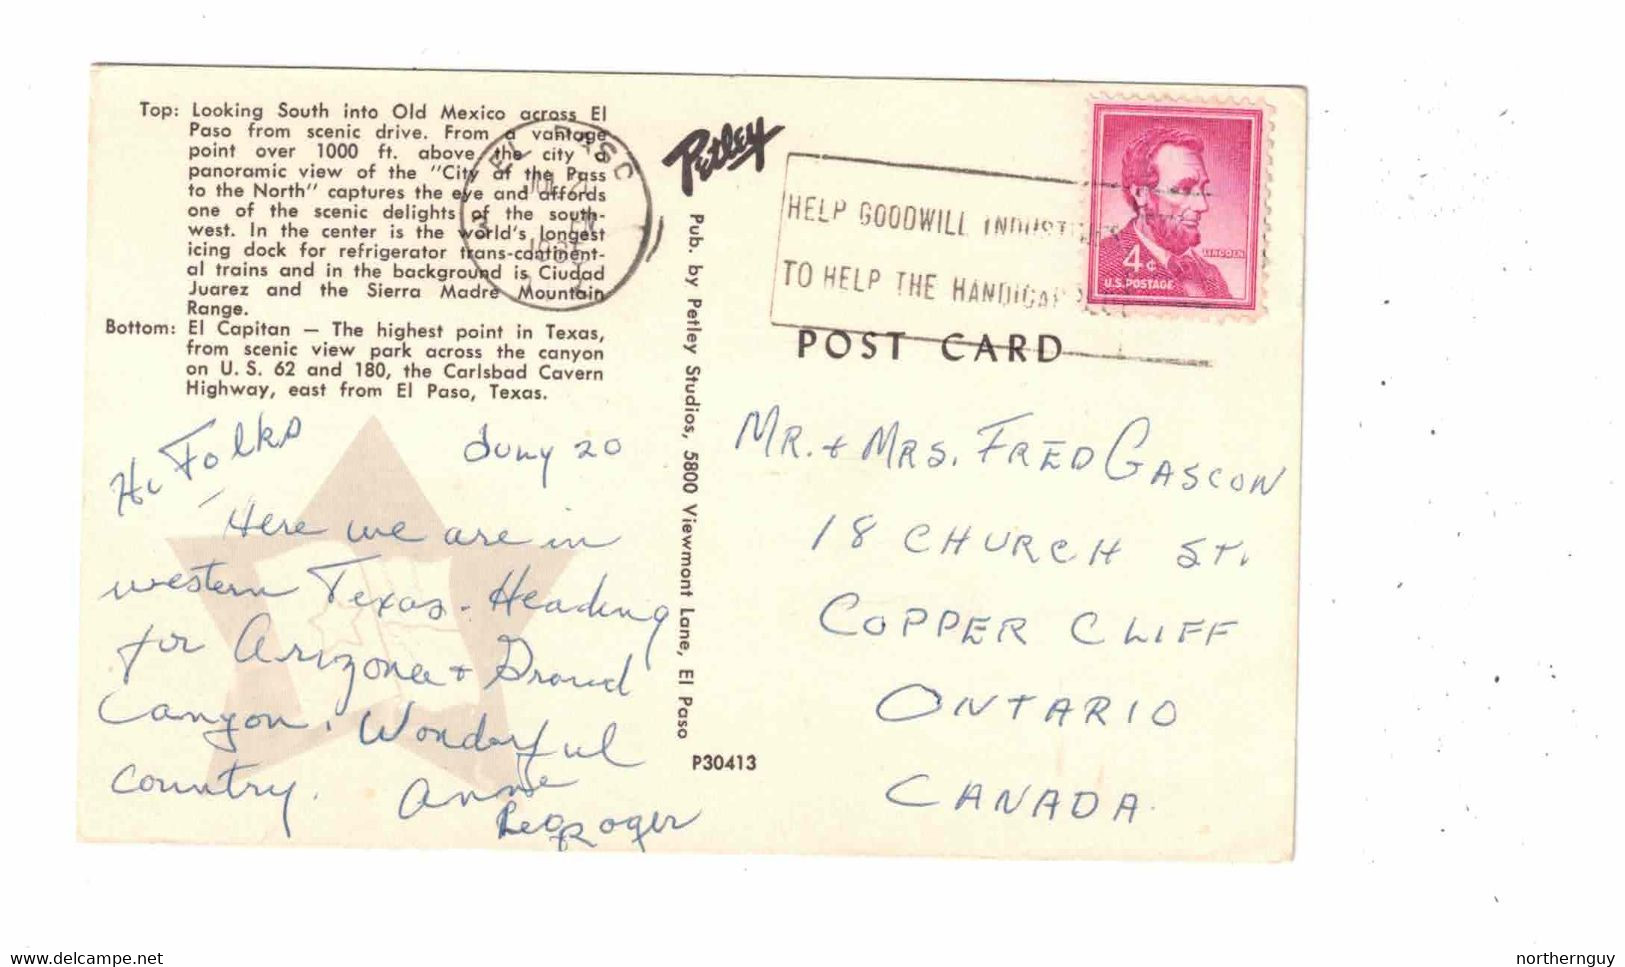 Top: Looking South into Old Mexico across El
Paso from scenic drive. From a vantage
point over 1000 ft. above the city a
panoramic view of the "City of the Pass
to the North" captures the eye and affords
one of the scenic delights of the south-
west. In the center is the world's longest
icing dock for refrigerator trans-continent-
al trains and in the background is Ciudad
Juarez and the Sierra Madre Mountain
Range.
Bottom: El Capitan — The highest point in Texas,
from scenic view park across the canyon
on U. S. 62 and 180, the Carlsbad Cavern
Highway, east from El Paso, Texas.
Hi Folks
20
Here we are in
western Texas. Heading
for Arizona + Grand
Canyon. Wonderful
country. Anne
Leo
Roger
Petley
Pub. by Petley Studios, 5800 Viewmont Lane, El Paso
P30413
EL PASO
HELP GOODWILL INDUSTRIES
TO HELP THE HANDICAPPED
4¢
LINCOLN
U.S. POSTAGE
POST CARD
MR. + MRS. FRED GASCON
18 CHURCH ST.
COPPER CLIFF
ONTARIO
CANADA.
www.delcampe.net
northernguy